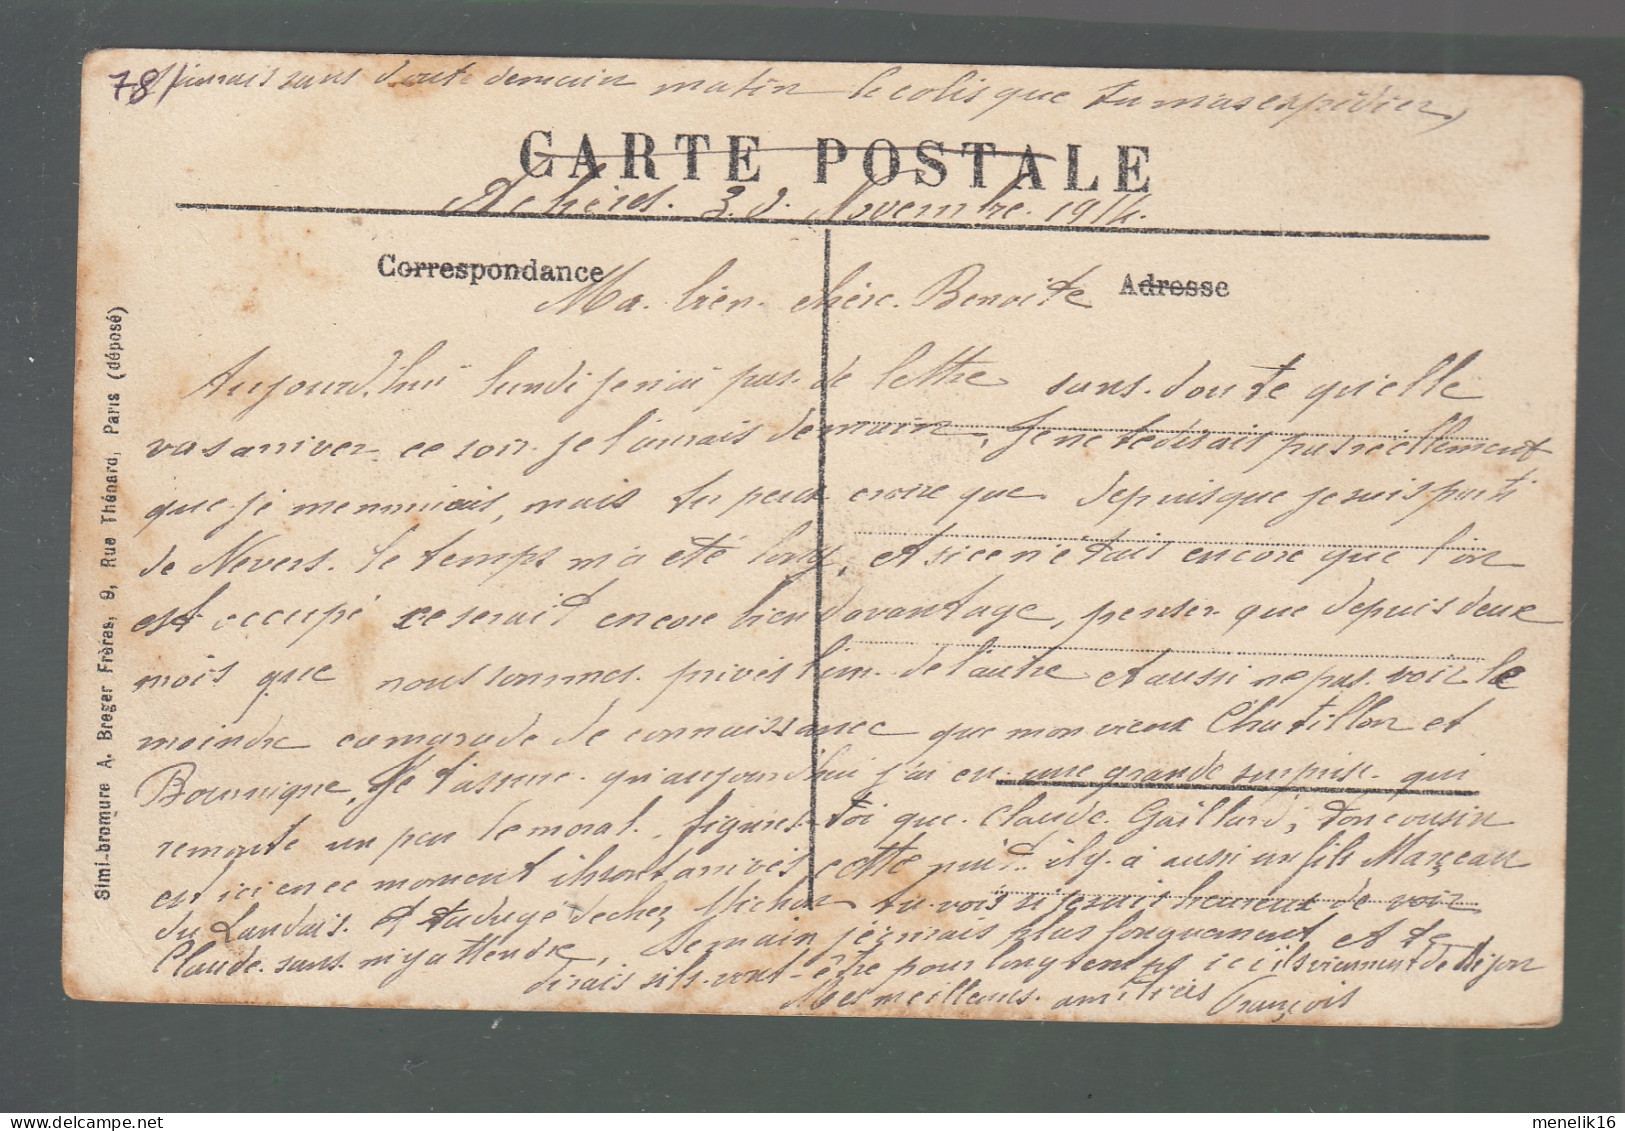 78/ j'aurais sans doute demain matin le colis que tu m'as expédier,
CARTE POSTALE
Achères. 30. Novembre. 1914.
Correspondance
Adresse
Ma. bien. chère. Benoite
Aujourd'hui lundi je n'ai pas. de lettre sans. doute qu'elle
vas arriver ce soir. je l'aurais demain, Je ne te dirais pas réellement
que je m'ennuiais, mais tu peux croire que depuis que je suis parti
de Nevers. le temps m'a été long, et si ce n'était encore que l'on
est occupé ce serait encore bien davantage, penser que depuis deux
mois que nous sommes. privés l'un. de l'autre et aussi ne pas. voir le
moindre camarade de connaissance que mon vieux Chatillon et
Bournique, Je t'assure. qu'aujourd'hui j'ai eu une grande surprise. qui
remonte un peu le moral. figures-toi que. Claude. Gaillard, ton cousin
est ici en ce moment ils sont arrivés cette nuit. il y. a aussi un fils Marceau
du Landais. et de chez Michot tu vois si je suis heureux de voir
Claude. sans. m'y attendre, Demain je causerais plus longuement et te
dirais s'ils. vont-être pour longtemps ici ils viennent de Dijon
Mes meilleures. amitiés François
Simi-bromure A. Breger Frères, 9, Rue Thénard, Paris (déposé)
menelik16